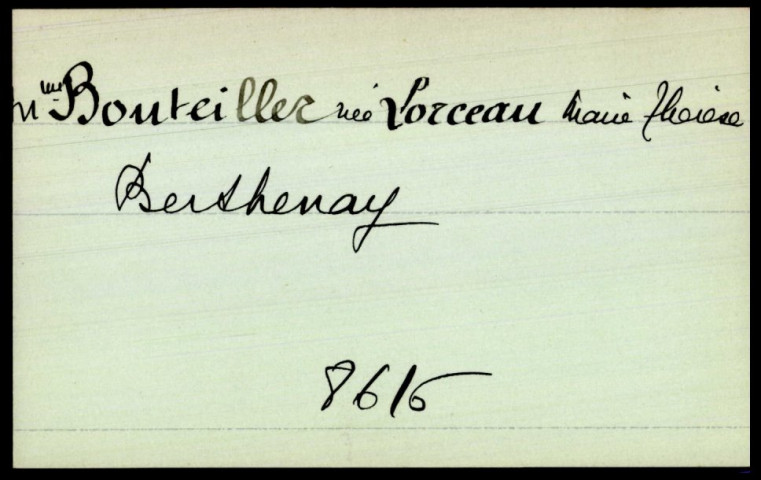 Mme Bouteiller née Lorceau Marie Thérèse
Berthenay
8615